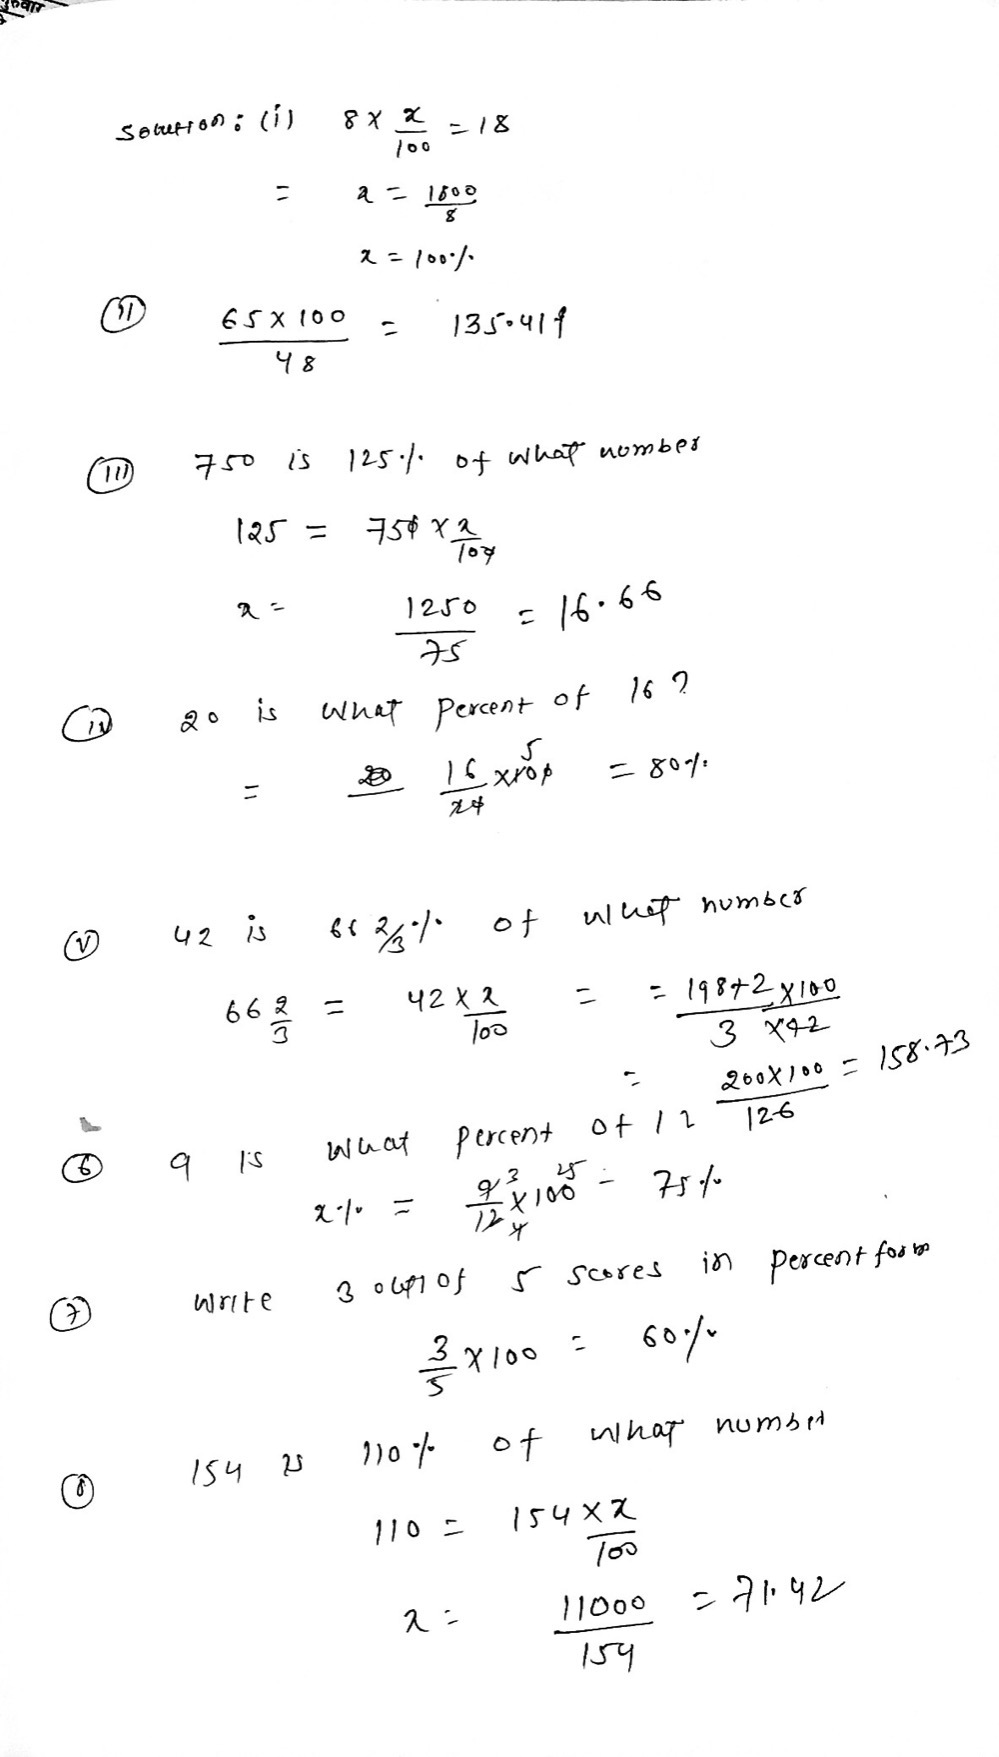 Solution: (i) 8 × x/100 = 18
= x = 1800/8
x = 100%
(ii) 65 × 100/48 = 135.419
(iii) 750 is 125% of what number
125 = 750 × x/100
x = 1250/75 = 16.66
(iv) 20 is what percent of 16?
= 16/20 × 100 5 = 80%
(v) 42 is 66 2/3% of what number
66 2/3 = 42 × x/100 = = 198+2/3 × 100/×42
= 200×100/126 = 158.73
(6) 9 is what percent of 12
x% = 9 3/12 4 × 100 25 = 75%
(7) write 3 out of 5 scores in percent form
3/5 × 100 = 60%
(8) 154 is 110% of what number
110 = 154 × x/100
x = 11000/154 = 71.42